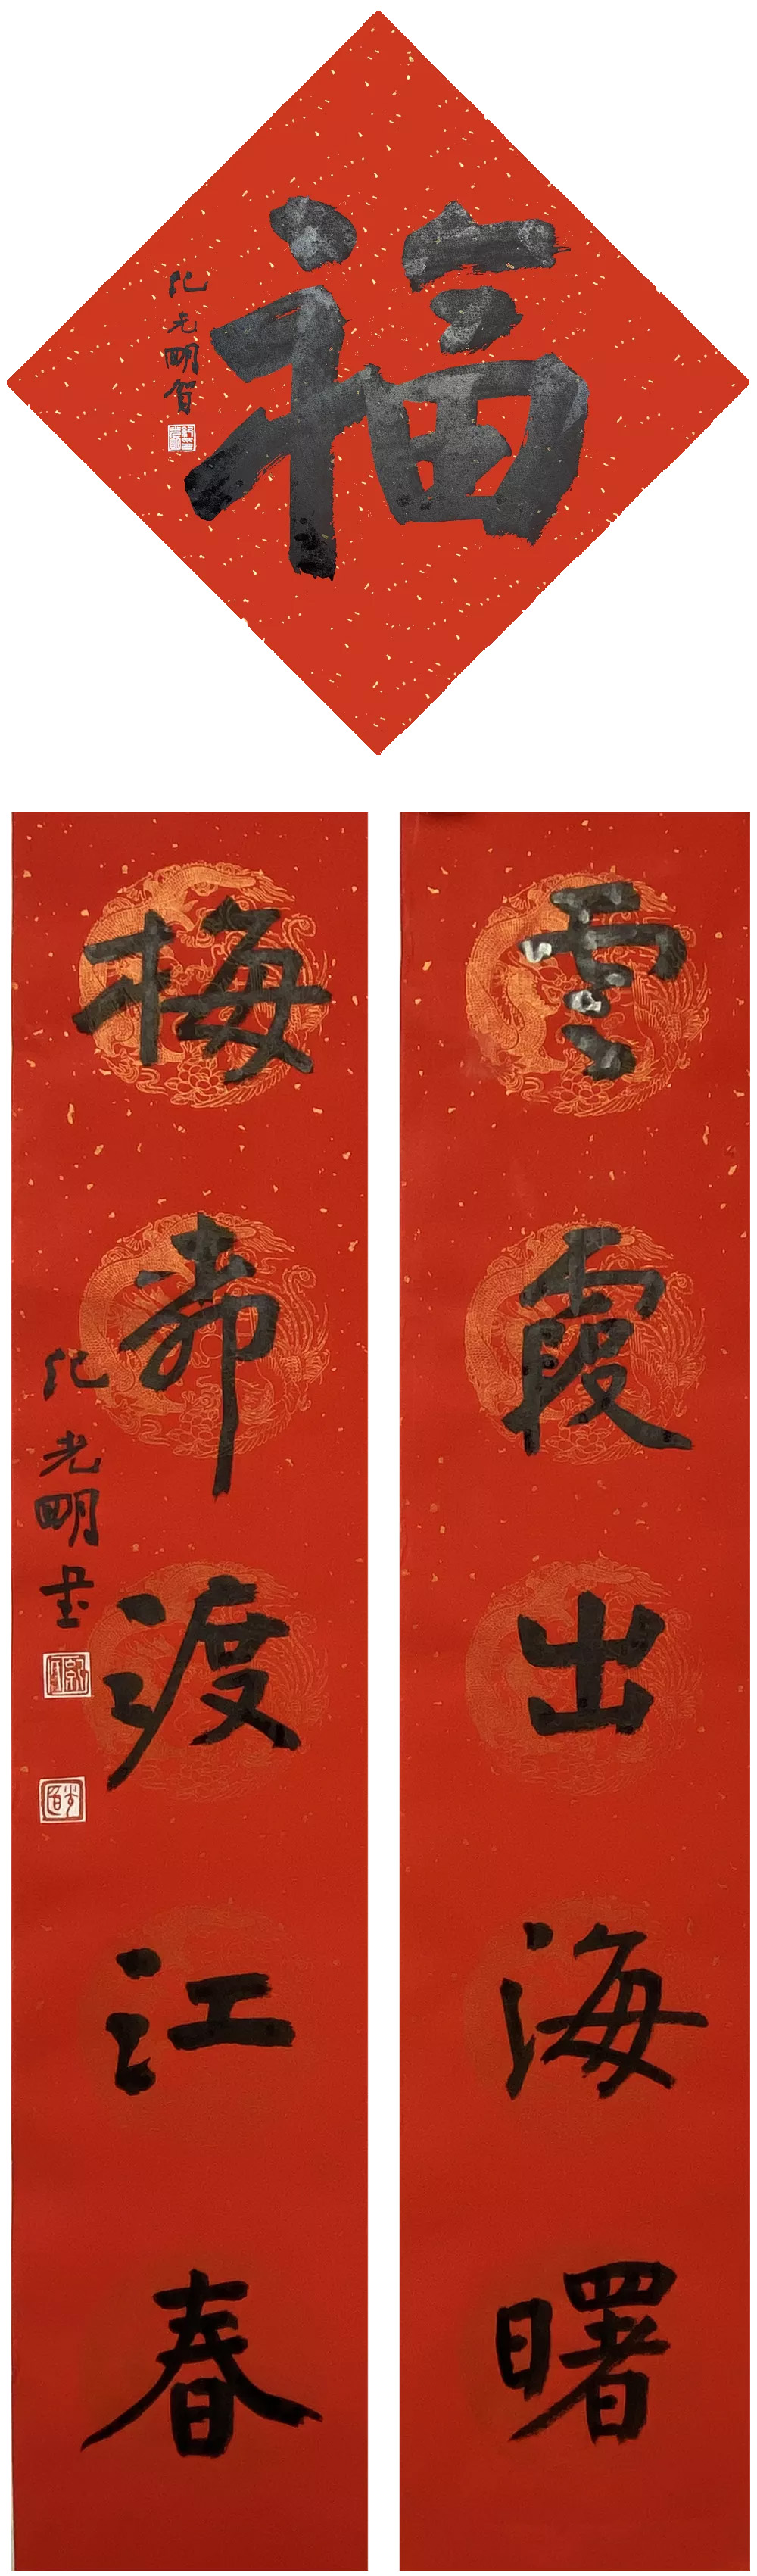 福
纪光明賀
雲霞出海曙
梅柳渡江春
纪光明書